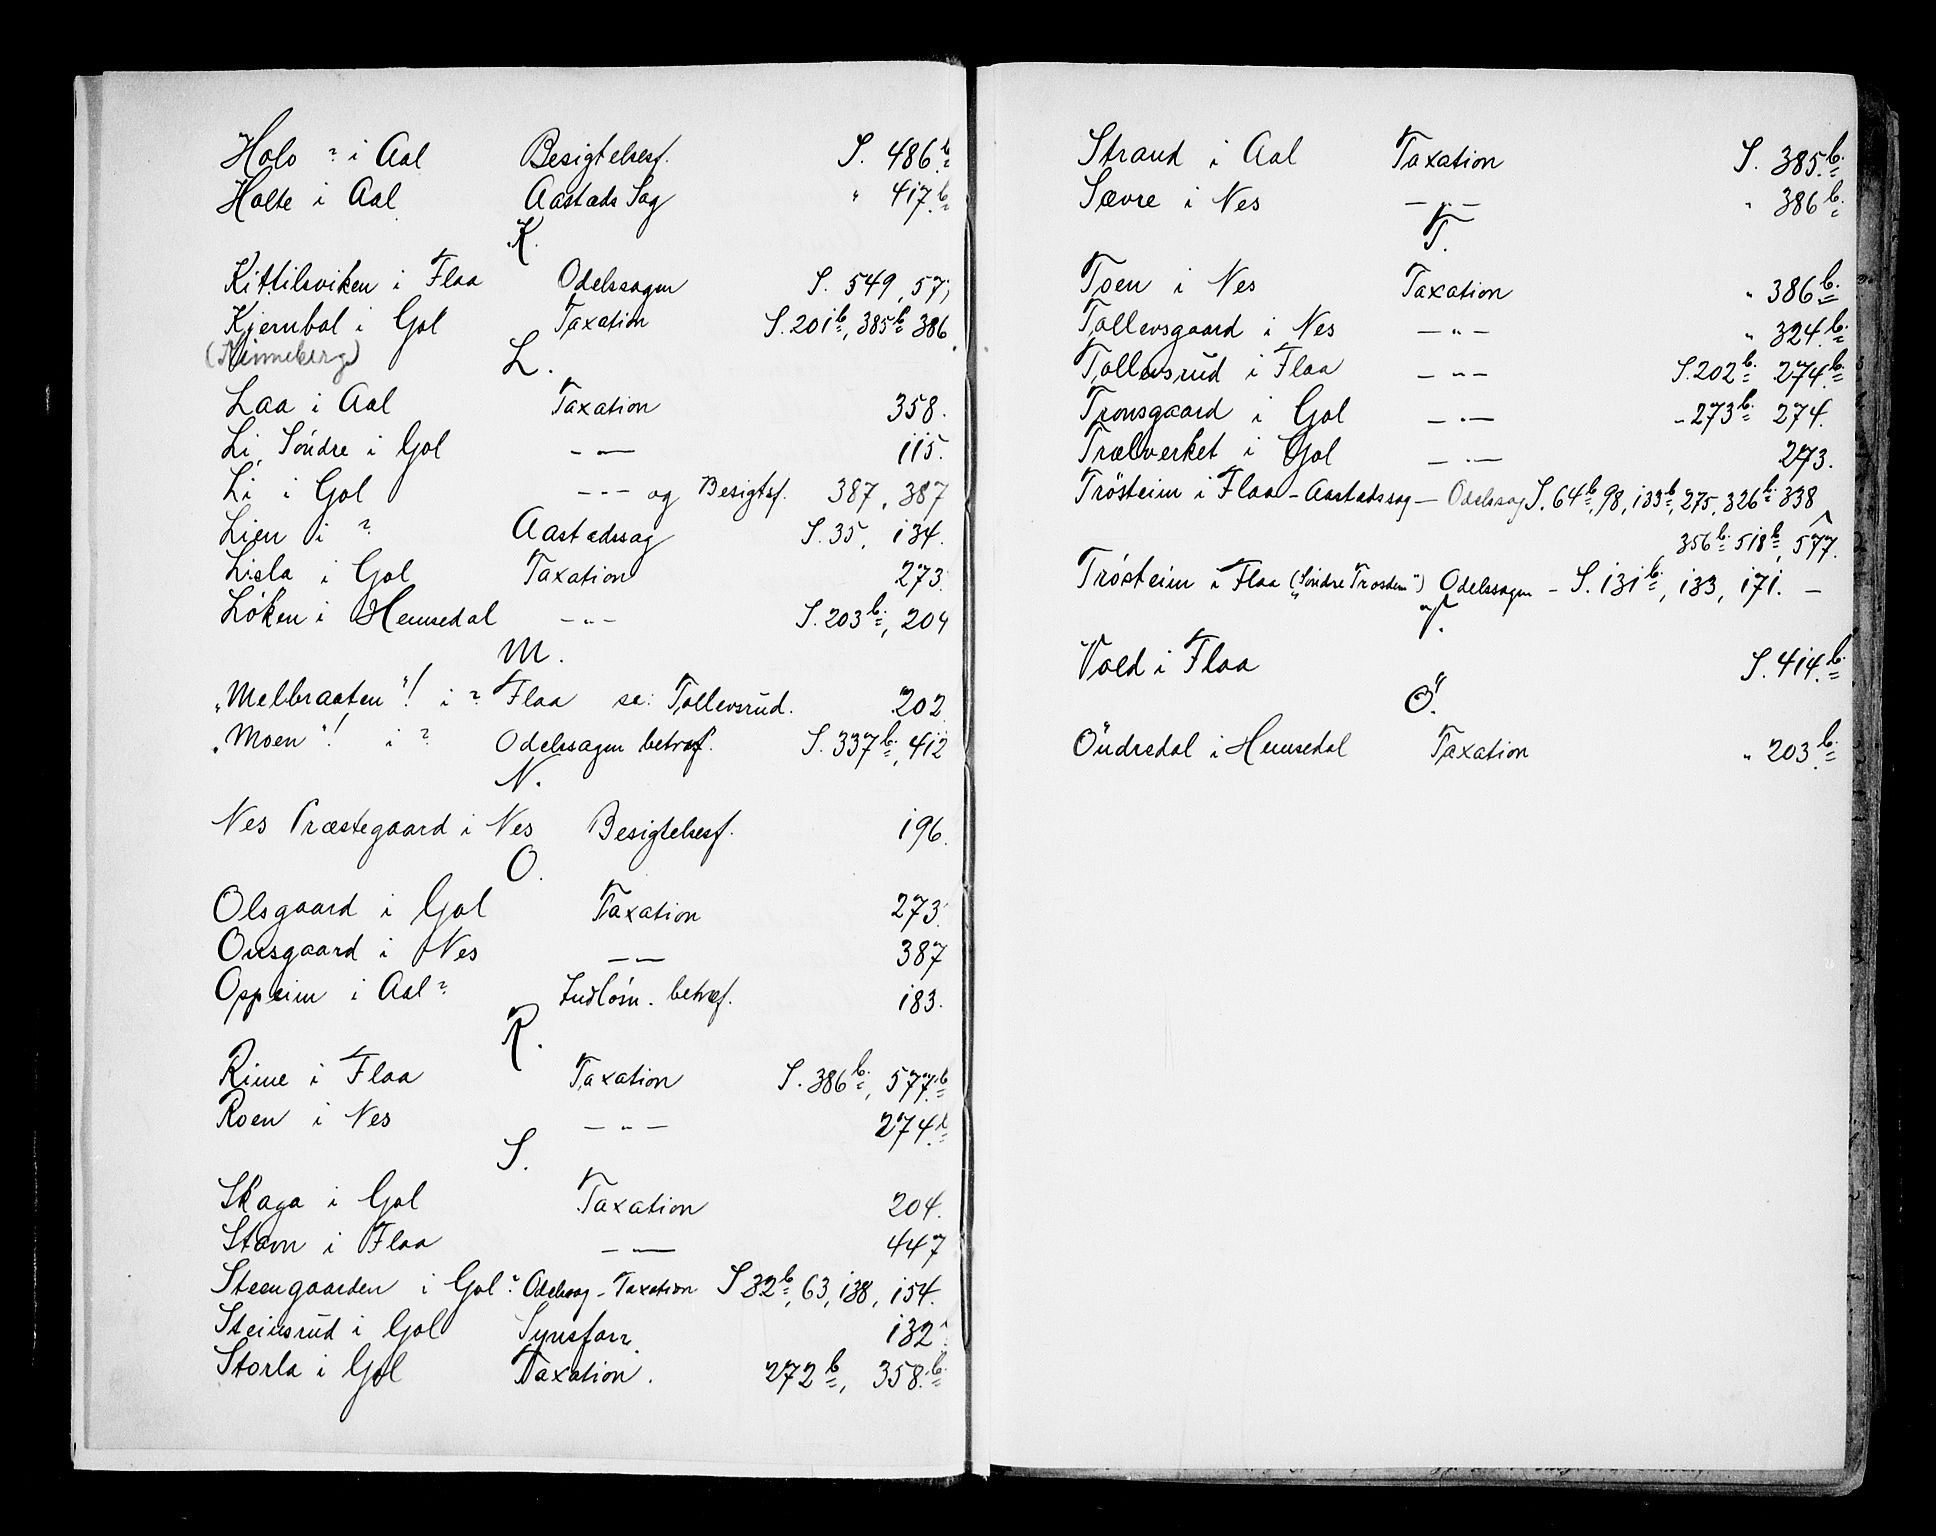 Holo ? i Aal Besigtelsesf. S. 486 b.
Holte i Aal Aasteds Sag " 417. b.
K.
Kittilsviken i Flaa Odelssagen S. 549, 57
Kjernbal i Gol Taxation S. 201 b., 385 b. 386.
L.
Laa i Aal Taxation 358.
Li, Söndre i Gol — — 115.
Li i Gol - - - og Besigtsf. 387, 387
Lien i ? Aastedssag S. 35, 134.
Lisla i Gol Taxation 273.
Löken i Hemsedal — " — S. 203 b., 204
M.
"Melbraaten"! i ? Flaa se: Tollevsrud. 202.
"Moen"! i ? Odelssagen betræf. S. 337 b., 412
N.
Nes Præstegaard i Nes Besigtelsesf. 196.
O.
Olsgaard i Gol Taxation 273.
Onsgaard i Nes — — 387
Oppeim i Aal ? Indlösn. betræf. 183.
R.
Rime i Flaa Taxation S. 386 b., 577. b
Roen i Nes — " — 274. b
S.
Skaga i Gol Taxation 204.
Stavn i Flaa — — 447
Steengaarden i Gol ? Odelssag - Taxation S 32 b., 63, 138, 154.
Steinsrud i Gol Synsforr. 132.
Storla i Gol Taxation. 272 b., 358. b.
Strand i Aal Taxation S. 385. b.
Sævre i Nes — " — " 386 b.
T.
Toen i Nes Taxation " 386 b.
Tollevsgaard i Nes — " — " 324. b.
Tollevsrud i Flaa — " — S. 202 b. 274. b.
Tronsgaard i Gol — " — - 273 b. 274.
Trælverket i Gol — " — 273.
Trösteim i Flaa - Aastedssag — Odelssag S. 64 b, 98, 133 b, 275, 326 b. 338
356 b. 518 b, 577.
Trösteim i Flaa ("Söndre Trostem") Odelssagen - S. 131 b., 133, 171. —
V.
Vold i Flaa S. 414. b.
Ö.
Öndredal i Hemsedal Taxation " 203. b.